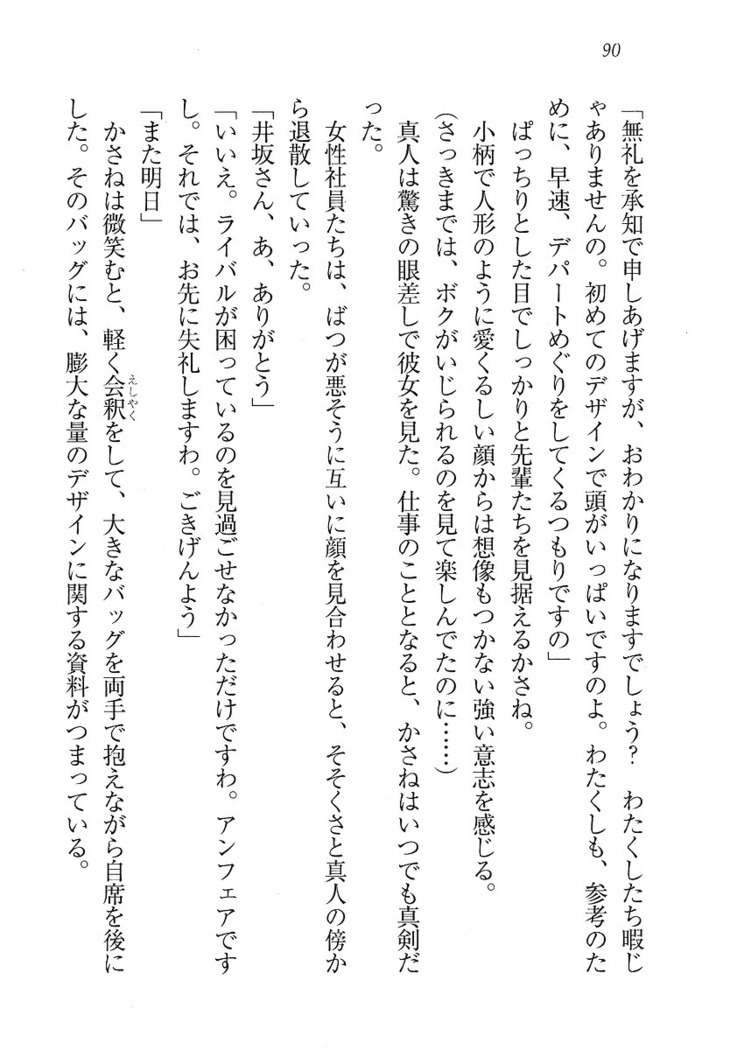 90
「無礼を承知で申しあげますが、おわかりになりますでしょう？　わたくしたち暇じ
ゃありませんの。初めてのデザインで頭がいっぱいですのよ。わたくしも、参考のた
めに、早速、デパートめぐりをしてくるつもりですの」
　ぱっちりとした目でしっかりと先輩たちを見据えるかさね。
　小柄で人形のように愛くるしい顔からは想像もつかない強い意志を感じる。
（さっきまでは、ボクがいじられるのを見て楽しんでたのに……）
　真人は驚きの眼差しで彼女を見た。仕事のこととなると、かさねはいつでも真剣だ
った。
　女性社員たちは、ばつが悪そうに互いに顔を見合わせると、そそくさと真人の傍か
ら退散していった。
「井坂さん、あ、ありがとう」
「いいえ。ライバルが困っているのを見過ごせなかっただけですわ。アンフェアです
し。それでは、お先に失礼しますわ。ごきげんよう」
「また明日」
　かさねは微笑むと、軽く会釈をして、大きなバッグを両手で抱えながら自席を後に
えしやく
した。そのバッグには、膨大な量のデザインに関する資料がつまっている。